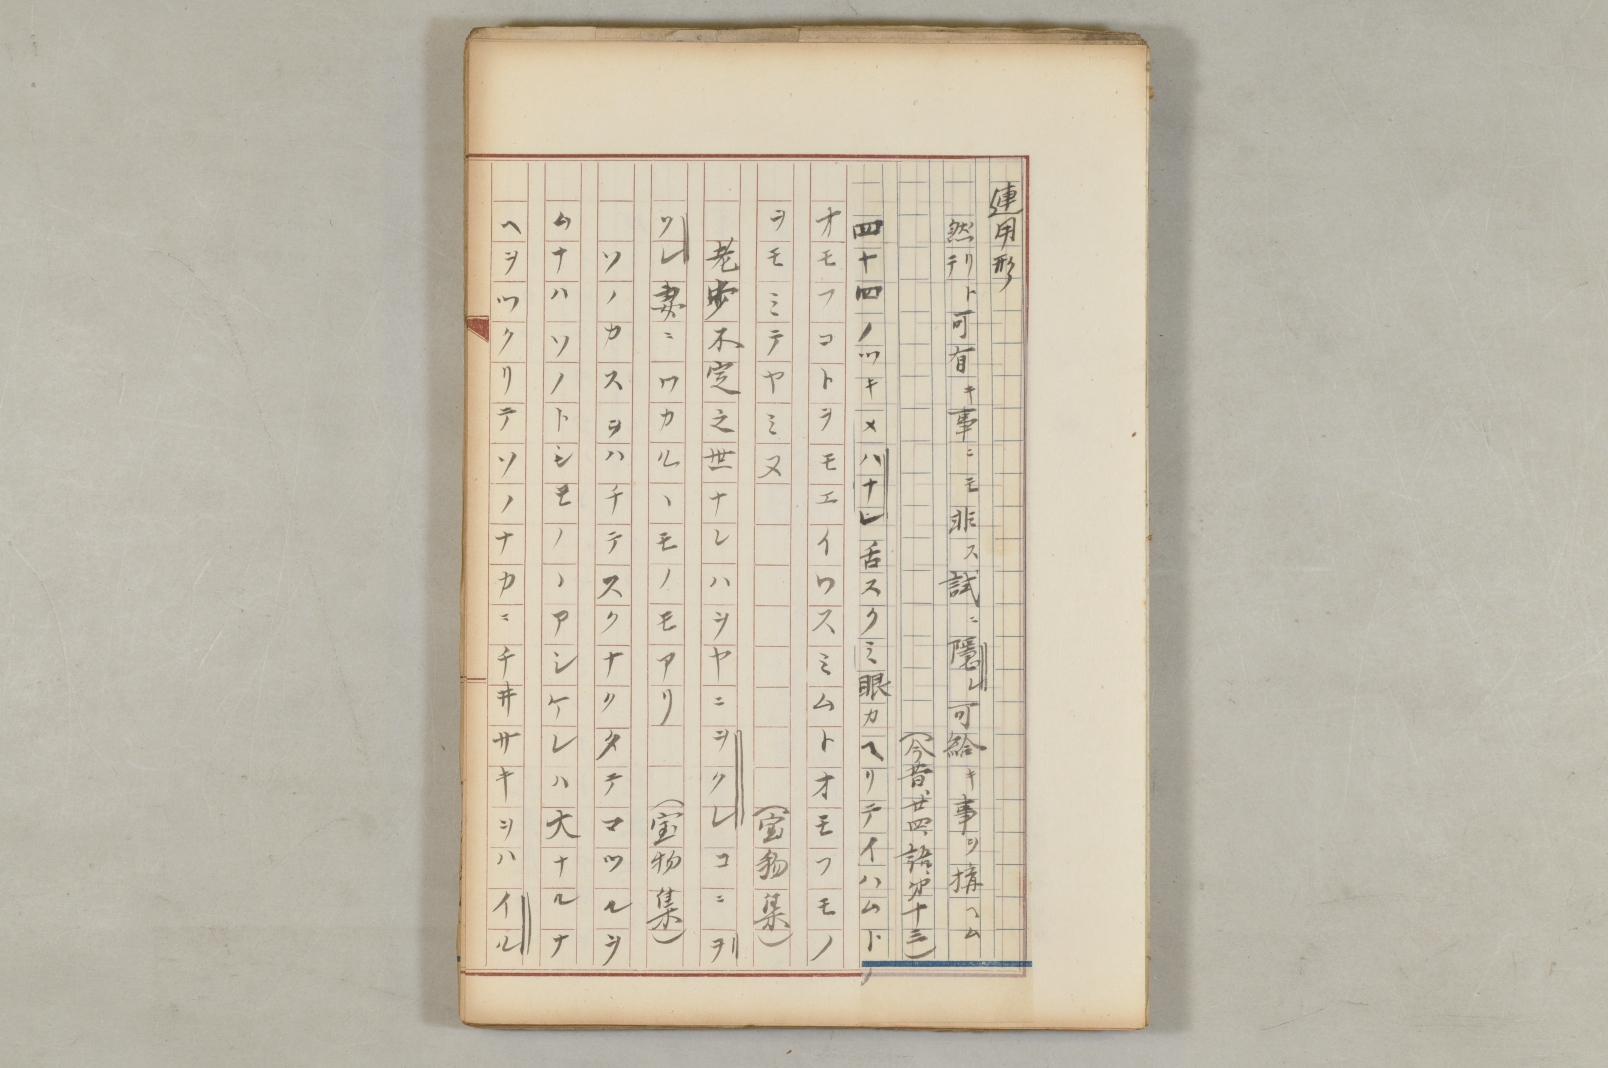 連用形
然リト可有キ事ニモ非ス試ニ隠レ可給キ事ヲ搆ヘム
テ
(今昔、廿四、語第十三)
四十四ノツキメハナレ舌スクミ眼カヘリテイハムト
オモフコトヲモエイワスミムトオモフモノ
ヲモミテヤミヌ
(宝物集)
老少不定之世ナレハヲヤニヲクレコニヲ
ツレ妻ニワカルヽモノモアリ
(宝物集)
ソノカスヲハチテスクナクタテマツルヲ
ムナハソノトシモノヽアシケレハ大ナルナ
ヘヲツクリテソノナカニチ井サキヲハイル